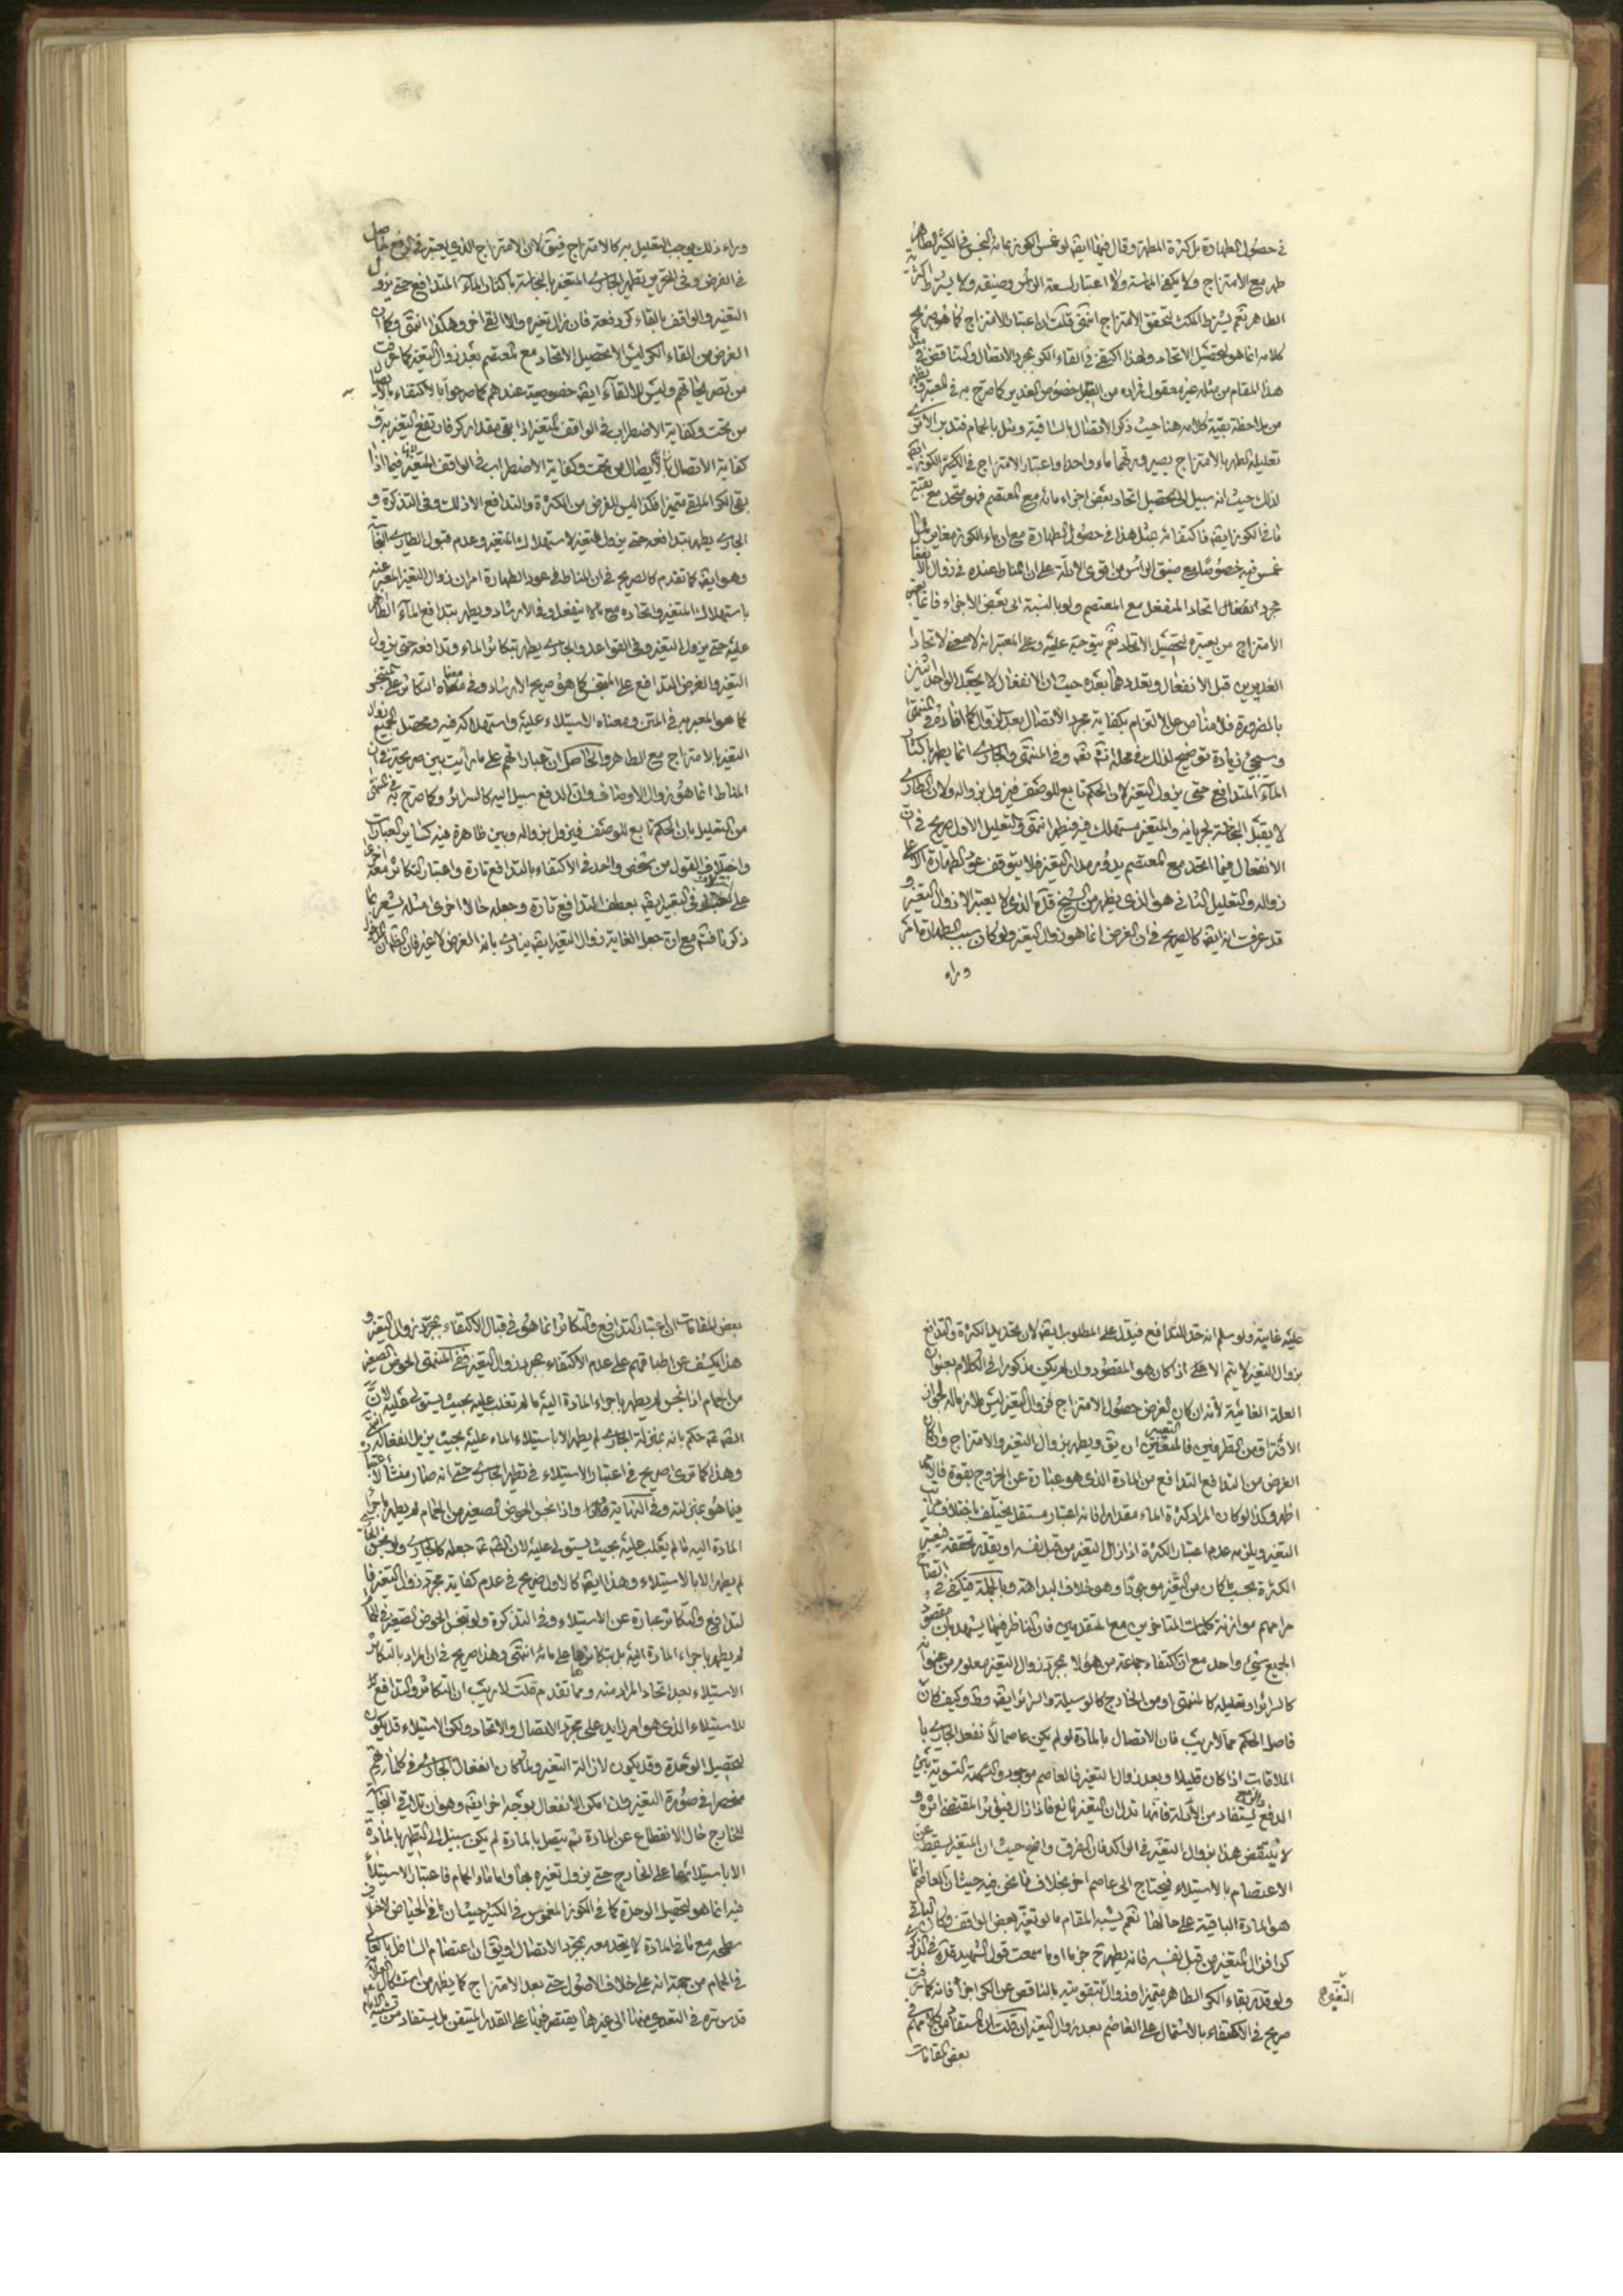 في حصول الطهارة بل كثرة المطهر وقال فيها ايضا لو غمس الكوز بمائه النجس في الكثير الطاهر
طهر مع الامتزاج ولا يكفي المماسة ولا اعتبار لسعة الراس وضيقه ولا يشترط اكثرية
الطاهر نعم يشترط المكث لتحقق الامتزاج انتهى قلت ان اعتبار الامتزاج كما هو صريح
كلامه انما هو لتحصيل الاتحاد ولهذا اكتفى في القاء الكر بمجرد الاتصال والتناقض في
هذا المقام من مثله غير معقول
من ملاحظة بقية كلامه هنا حيث ذكر الاتصال بالساقية ومثل بالحمام فتدبر
تعليله الطهر بالامتزاج بصيرورتهما ماء واحدا واعتبار الامتزاج في الكوز
لذلك حيث انه سبيل الى تحصيل اتحاد بعض اجزاء مائه مع المعتصم فهو متحد مع بقية
ما في الكوز ايضا فاكتفائه بمثل هذا في حصول الطهارة مع ان ماء الكوز مغاير لما
غمس فيه خصوصا مع ضيق الراس من اقوى الادلة على ان المناط عنده في زوال
مجرد انفعال اتحاد المنفعل مع المعتصم ولو بالنسبة الى بعض الاجزاء
الامتزاج من يعتبره لتحصيل الاتحاد نعم يتوجه عليه وعلى المعتبر انه لا معنى لاتحاد
الغديرين قبل الانفعال وتعددهما بعده حيث ان الانفعال لا يجعل الواحد اثنين
بالضرورة فلا مناص من الالتزام بكفاية مجرد الاتصال بعد الزوال كما افاده في المنتهى
وسيجئ زيادة توضيح لذلك في محله وفي المنتهى والجاري انما يطهر باكثار
الماء المتدافع حتى يزول التغير لان الحكم تابع للوصف فيزول بزواله ولان الطاري
لا يقبل النجاسة لجريانه والمتغير مستهلك فيه فيطهر انتهى والتعليل الاول صريح في ان
الانفعال فيما اتحد مع المعتصم يدور مدار التغير فلا يتوقف عود الطهارة الا على
زواله والتعليل الثاني هو الذي يظهر من الشيخ قده الذي لا يعتبر الا زوال التغير و
قد عرفت انه ايضا كالصريح في ان الغرض انما هو زوال التغير ولو كان سبب الطهارة
وراء
وراء ذلك لوجب التعليل به كالامتزاج فيقال لان الامتزاج الذي يعتبر في الرفع حاصل
في الفرض وفي التحرير يطهر الجاري المتغير بالنجاسة باكثار الماء المتدافع حتى يزول
التغير والواقف بالقاء كر دفعة فان زال تغيره والا القي اخر وهكذا انتهى وكما ان
الغرض من القاء الكر ليس الا تحصيل الاتحاد مع المعتصم بعد زوال التغير كما عرفت
من تصريحاتهم وليس للالقاء ايضا خصوصية عندهم كما صرحوا بالاكتفاء بالاتصال
من تحت وكفاية الاضطراب في الواقف المتغير اذا بقي مقدار كر فارتفع التغير به
كفاية الاتصال من تحت وكفاية الاضطراب في الواقف المتغير فيما اذا
بقي الكر الملقى متميزا فكذا ليس الغرض من الكثرة والتدافع الا ذلك وفي التذكرة و
الجاري يطهر بتدافعه حتى يزول التغير لاستهلاك المتغير وعدم قبول الطاري النجاسة
وهو ايضا كما تقدم كالصريح في ان المناط في عود الطهارة امران زوال التغير المعبر عنه
باستهلاك المتغير واتحاده مع ما لا ينفعل وفي الارشاد ويطهر بتدافع الماء الطاهر
عليه حتى يزول التغير وفي القواعد والجاري يطهر بتكاثر الماء وتدافعه حتى يزول
التغير والغرض التدافع على المتنجس كما هو صريح الارشاد وفي معناه التكاثر على المتنجس
كما هو المعبر به في المتن ومعناه الاستيلاء عليه واستهلاكه فيه ومحصل الجميع زوال
التغير بالامتزاج مع الطاهر والحاصل ان عباراتهم على ما رايت بين صريحة في ان
المناط انما هو زوال الاوصاف وان الدفع سبيل اليه كالسرائر وكما صرح به في المنتهى
من التعليل بان الحكم تابع للوصف فيزول بزواله وبين ظاهرة فيه كسائر العبارات
واختلاف القول من شخص واحد في الاكتفاء بالتدافع تارة واعتبار التكاثر معه اخرى
على اختلاف في التعبير ايضا بعطف التدافع تارة وجعله حالا اخرى مثله يشعر بما
ذكرنا فتم مع ان جعل الغاية زوال التغير ايضا ينادي بانه الغرض لا غير فان الظاهر ان المدخول
عليه غايته ولو سلم انه حد للتدافع فيدل على المطلوب ايضا لان تحديد الكثرة والتدافع
بزوال التغير لا يتم الا اذا كان هو المقصود وان لم يكن مذكورا في الكلام بعنوان
العلة الغائية لانه ان كان الغرض حصول الامتزاج فزوال التغير ليس ملازما له لجواز
الافتراق من الطرفين فالمتعين ان يقال ويطهر بزوال التغير والامتزاج وان كان
الغرض من التدافع التدافع من المادة الذي هو عبارة عن الخروج بقوة
اظهر وكذا لو كان المراد كثرة الماء مقدارا فانه اعتبار مستقل يختلف باختلاف مراتب
التغير ويلزمه عدم اعتبار الكثرة اذا زال التغير من قبل نفسه او بقدر تحققه فيعتبر
الكثرة بحيث لو كان من التغير موجودا وهو خلاف البداهة وبالجملة فيكفي في
مرامهم موازنة كلمات المتاخرين مع المتقدمين فان الناظر فيها يشهد بان مقصود
الجميع شيء واحد مع ان اكتفاء جماعة من هؤلاء بمجرد زوال التغير معلوم من عنوانه
كالسرائر او تعليله كالمنتهى او من الخارج كالوسيلة والسرائر ايضا وكيف كان
فاصل الحكم مما لا ريب فان الاتصال بالمادة لو لم يكن عاصما لانفعل الجاري
الملاقات اذا كان قليلا وبعد زوال التغير فالعاصم موجود والتسوية بين
الدفع والرفع يستفاد من الادلة فانها تدل ان التغير مانع فاذا زال فيؤثر المقتضي اثره و
لا ينتقض هذا بزوال التغير في الراكد فان الفرق واضح حيث ان المتغير يسقط عن
الاعتصام بالاستيلاء فيحتاج الى عاصم اخر بخلاف ما نحن فيه حيث ان العاصم انما
هو المادة الباقية على حالها نعم يشبه المقام ما لو تغير بعض الواقف وكان الباقي
كرا فزال التغير من قبل نفسه فانه يطهر جزما او ما سمعت قول الشهيد قده في الذكرى
ولو قدر بقاء الكر الطاهر متميزا وزوال التغير بتقويته بالناقص عن الكر اجزأ فانه كما عرفت
صريح في الاكتفاء بالاشتمال على العاصم بعد زوال التغير ان قلت ان المستفاد من كلامهم في
التغيير
بعض المقامات
بعض المقامات ان اعتبار التدافع والتكاثر انما هو في قبال الاكتفاء بمجرد زوال التغير و
هذا يكشف عن اطباقهم على عدم الاكتفاء بمجرد زوال التغير ففي المنتهى الحوض الصغير
من الحمام اذا نجس لم يطهر باجراء المادة اليه ما لم تغلب عليه بحيث يستولي عليه لان
الصادق حكم بانه بمنزلة الجاري لم يطهر الا باستيلاء الماء عليه بحيث يزيل انفعاله انتهى
وهذا كما ترى صريح في اعتبار الاستيلاء في تطهير الجاري حتى انه صار منشأ لاعتباره
فيما هو بمنزلته وفي النهاية واذا نجس الحوض الصغير من الحمام لم يطهر باجراء
المادة اليه ما لم يغلب عليه بحيث يستولي عليه لان الصادق جعله كالجاري ولو نجس الجاري
لم يطهر الا بالاستيلاء وهذا ايضا كالاول صريح في عدم كفاية مجرد زوال التغير
التدافع والتكاثر عبارة عن الاستيلاء وفي التذكرة ولو نجس الحوض الصغير في الحمام
لم يطهر باجراء المادة اليه بل بتكاثرها على مائه انتهى وهذا صريح في ان المراد بالتكاثر
الاستيلاء بعد اتحاد المراد منه ومما تقدم قلت لا ريب ان التكاثر والتدافع
الاستيلاء الذي هو امر زايد على مجرد الاتصال والاتحاد ولكن الاستيلاء قد يكون
لتحصيل الوحدة وقد يكون لازالة التغير ولما كان انفعال الجاري في كلماتهم
منحصرا في صورة التغير وان امكن الانفعال بوجه اخر ايضا وهو ان تلاقي النجاسة
للخارج حال الانقطاع عن المادة ثم يتصل بالمادة لم يكن سبيل الى التطهير بالمادة
الا باستيلائها على الخارج حتى يزول تغيره بها واما ماء الحمام فاعتبار الاستيلاء
فيه انما هو لتحصيل الوحدة كما في الكوز المغموس في الكثير حيث ان ما في الحياض لاختلاف
سطحه مع ما في المادة لا يتحد معه بمجرد الاتصال او يقال ان اعتصام السافل بالعالي
في الحمام من جهة انه على خلاف الاصول حتى بعد الامتزاج كما يظهر من استشكال العلامة
قدس سره في التعدي عنها الى غيرها يقتصر فيها على القدر المتيقن بل يستفاد من تشبيه الامام